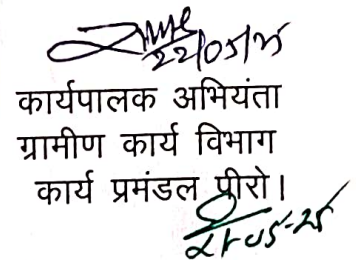 22/05/25
कार्यपालक अभियंता
ग्रामीण कार्य विभाग
कार्य प्रमंडल पीरो।
21-05-25